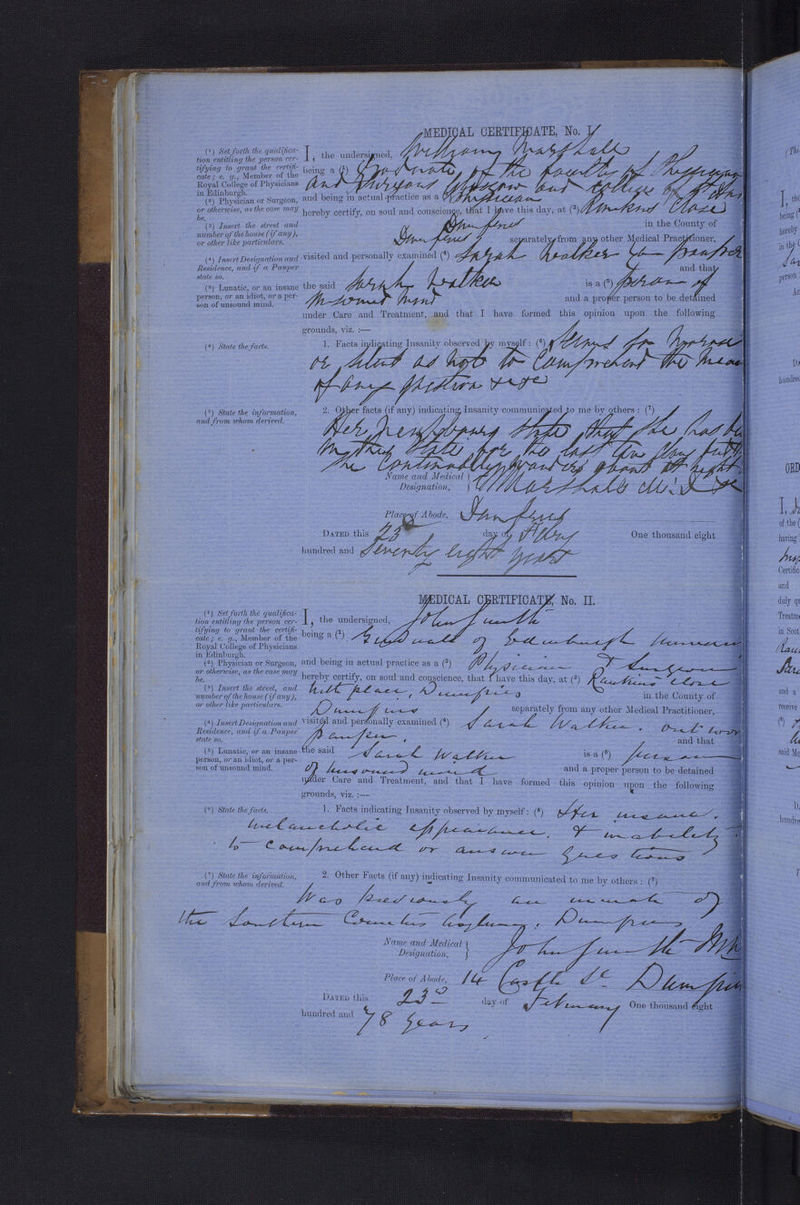 MEDICAL CERTIFICATE, No. I.
(¹) Set forth the qualifica-
tion entitling the person cer-
tifying to grant the certifi-
cate; e. g., Member of the
Royal College of Physicians
in Edinburgh.
(²) Physician or Surgeon,
or otherwise, as the case may
be.
(³) Insert the street and
number of the house (if any),
or other like particulars.
(⁴) Insert Designation and
Residence, and if a Pauper
state so.
(⁵) Lunatic, or an insane
person, or an idiot, or a per-
son of unsound mind.
(⁶) State the facts.
(⁷) State the information,
and from whom derived.
I, the undersigned, William Marshall
being a (¹) Graduate of the Faculty of Physicians
and Surgeons Glasgow and College of
and being in actual practice as a Physician
hereby certify, on soul and conscience, that I have this day, at (³) Rankins Close
Dumfries in the County of
Dumfries separately from any other Medical Practitioner,
visited and personally examined (⁴) Sarah Walker a pauper
and that
the said Sarah Walker is a (⁵) person of
unsound mind and a proper person to be detained
under Care and Treatment, and that I have formed this opinion upon the following
grounds, viz. :—
1. Facts indicating Insanity observed by myself: (⁶) Seems
or silent as not to comprehend the
of any question &c &c
2. Other facts (if any) indicating Insanity communicated to me by others : (⁷)
Her neighbours state that she has
in this state for the last
She continually wanders about at night
Name and Medical
Designation, } W Marshall M.D &c
Place of Abode, Dumfries
DATED this 23d day of Feby One thousand eight
hundred and Seventy eight years
MEDICAL CERTIFICATE, No. II.
(¹) Set forth the qualifica-
tion entitling the person cer-
tifying to grant the certifi-
cate; e. g., Member of the
Royal College of Physicians
in Edinburgh.
(²) Physician or Surgeon,
or otherwise, as the case may
be.
(³) Insert the street, and
number of the house (if any),
or other like particulars.
(⁴) Insert Designation and
Residence, and if a Pauper
state so.
(⁵) Lunatic, or an insane
person, or an idiot, or a per-
son of unsound mind.
(⁶) State the facts.
(⁷) State the information,
and from whom derived.
I, the undersigned, John
being a (¹) Graduate of Edinburgh
and being in actual practice as a (²) Physician & Surgeon
hereby certify, on soul and conscience, that I have this day, at (³) Rankins Close
place, Dumfries in the County of
Dumfries separately from any other Medical Practitioner,
visited and personally examined (⁴) Sarah Walker.
Pauper. and that
the said Sarah Walker is a (⁵) person
of unsound mind and a proper person to be detained
under Care and Treatment, and that I have formed this opinion upon the following
grounds, viz. :—
1. Facts indicating Insanity observed by myself: (⁶) Her insane.
melancholic appearance. & inability
to comprehend or answer questions
2. Other Facts (if any) indicating Insanity communicated to me by others : (⁷)
Was previously an inmate of
the Southern Counties Asylum, Dumfries
Name and Medical
Designation, } John
Place of Abode, 14 Castle St. Dumfries
DATED this 23d day of February One thousand eight
hundred and 78 years